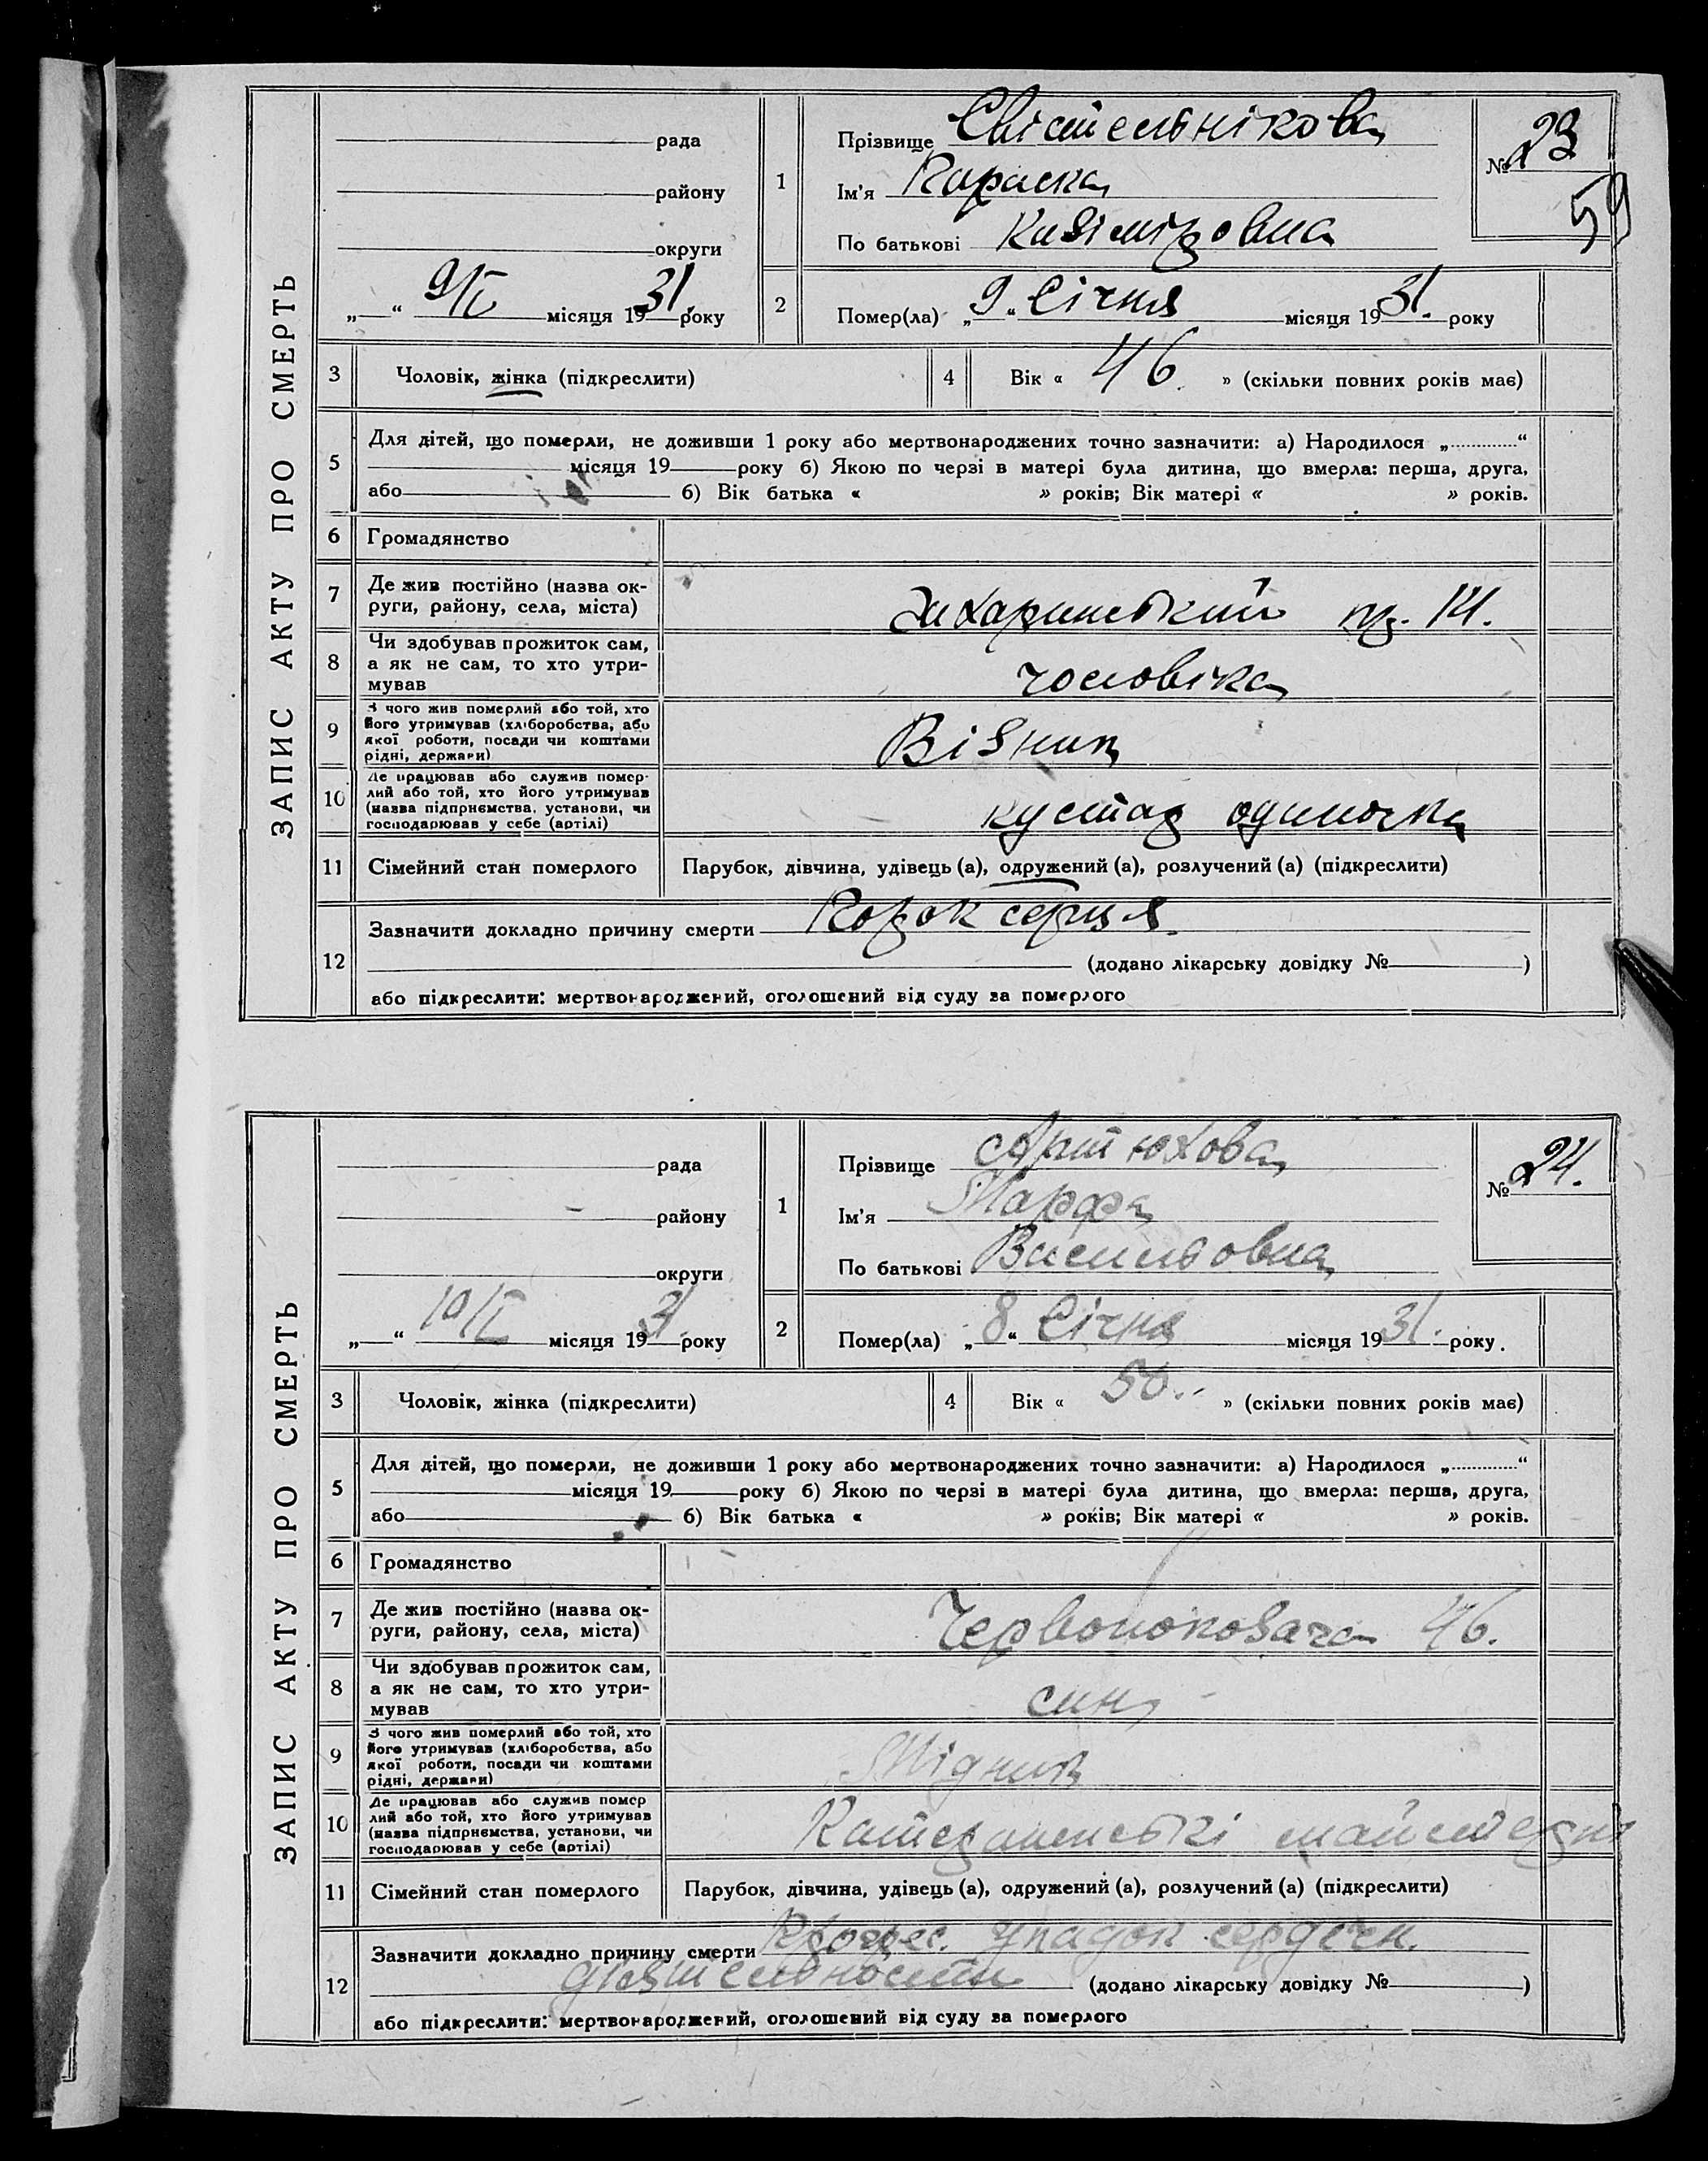 ЗАПИС АКТУ ПРО СМЕРТЬ
рада
району
округи
„ “ 9/I місяця 1931. року
1
Прізвище Світельнікова
Ім'я
По батькові Казіміровна
№ 23
59
2
Помер(ла) „9.“ Січня місяця 1931. року
3
Чоловік, жінка (підкреслити)
4
Вік « 46. » (скільки повних років має)
5
Для дітей, що померли, не доживши 1 року або мертвонароджених точно зазначити: а) Народилося „.............“
місяця 19 року б) Якою по черзі в матері була дитина, що вмерла: перша, друга,
або б) Вік батька « » років; Вік матері « » років.
6
Громадянство
7
Де жив постійно (назва ок-
руги, району, села, міста)
пр. 14.
8
Чи здобував прожиток сам,
а як не сам, то хто утри-
мував
чоловіка
9
З чого жив померлий або той, хто
його утримував (хліборобства, або
якої роботи, посади чи коштами
рідні, держави)
Візник
10
Де працював або служив помер-
лий або той, хто його утримував
(назва підприємства, установи, чи
господарював у себе (артілі)
кустар одиночка
11
Сімейний стан померлого
Парубок, дівчина, удівець (а), одружений (а), розлучений (а) (підкреслити)
12
Зазначити докладно причину смерти Порок серця.
(додано лікарську довідку № )
або підкреслити: мертвонароджений, оголошений від суду за померлого
ЗАПИС АКТУ ПРО СМЕРТЬ
рада
району
округи
„ “ 10/I місяця 1931. року
1
Прізвище Артюхова
Ім'я Марфа
По батькові Васильовна
№ 24.
2
Помер(ла) „8“ Січня місяця 1931. року.
3
Чоловік, жінка (підкреслити)
4
Вік « 50. » (скільки повних років має)
5
Для дітей, що померли, не доживши 1 року або мертвонароджених точно зазначити: а) Народилося „.............“
місяця 19 року б) Якою по черзі в матері була дитина, що вмерла: перша, друга,
або б) Вік батька « » років; Вік матері « » років.
6
Громадянство
7
Де жив постійно (назва ок-
руги, району, села, міста)
Червонокозача 46.
8
Чи здобував прожиток сам,
а як не сам, то хто утри-
мував
син
9
З чого жив померлий або той, хто
його утримував (хліборобства, або
якої роботи, посади чи коштами
рідні, держави)
Мідник
10
Де працював або служив помер
лий або той, хто його утримував
(назва підприємства, установи, чи
господарював у себе (артілі)
майстерні
11
Сімейний стан померлого
Парубок, дівчина, удівець (а), одружений (а), розлучений (а) (підкреслити)
12
Зазначити докладно причину смерти упадок сердечн.
діятельности (додано лікарську довідку № )
або підкреслити: мертвонароджений, оголошений від суду за померлого